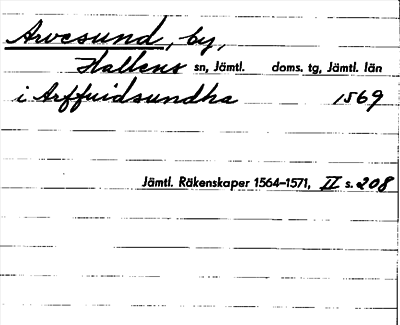 Arvesund, by,
Hallens sn, Jämtl. doms. tg, Jämtl. län
i Arffuidsundha 1569
Jämtl. Räkenskaper 1564–1571, II s. 208